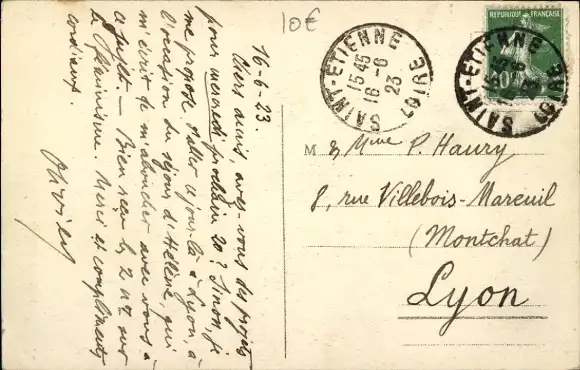 16-6-23.
Chers amis, avez-vous des projets
pour mercredi prochain 20? Sinon, je
me propose d'aller ce jour-là à Lyon, à
l'occasion du séjour d'Hélène, qui
m'écrit de m'aboucher avec vous à
ce sujet. — Bien reçu les 2 nos sur
le Féminisme. Merci et compliments
cordiaux.
10€
SAINT-ETIENNE
15 45
16-6
23
LOIRE
REPUBLIQUE FRANÇAISE
10
SAINT-ETIENNE
LOIRE
M & Mme P. Haury
8, rue Villebois-Mareuil
(Montchat)
Lyon